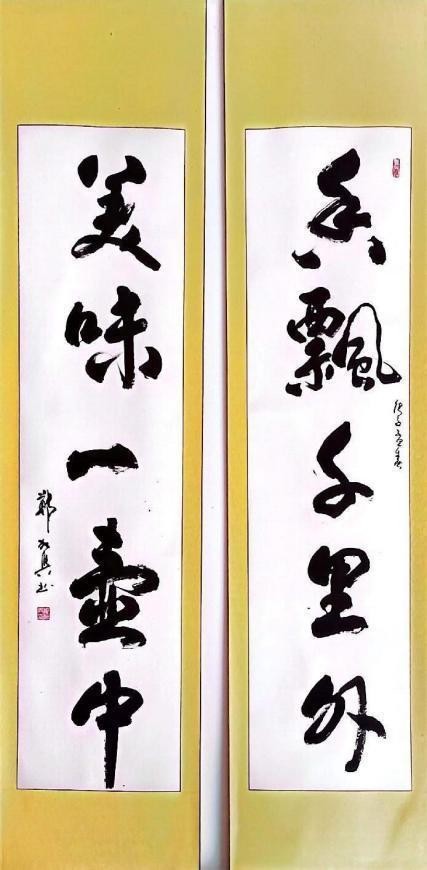 香飄千里外
美味一壺中